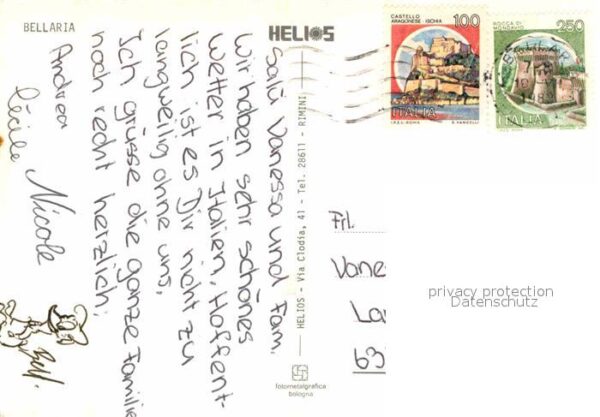 BELLARIA
HELIOS
CASTELLO
ARAGONESE ISCHIA
100
ITALIA
I.P.S. - ROMA
E. VANGELLI
ROCCA DI
MONDAVIO
250
ITALIA
Salü Vanessa und Fam.
Wir haben sehr schönes
Wetter in Italien, Hoffent-
lich ist es Dir nicht zu
langweilig ohne uns,
Ich grüsse die ganze Familie
noch recht herzlich:
Andrea
Cécile Nicole
HELIOS - Via Clodia, 41 - Tel. 28611 - RIMINI
fotometalgrafica
bologna
Frl.
Vane
La
63
privacy protection
Datenschutz